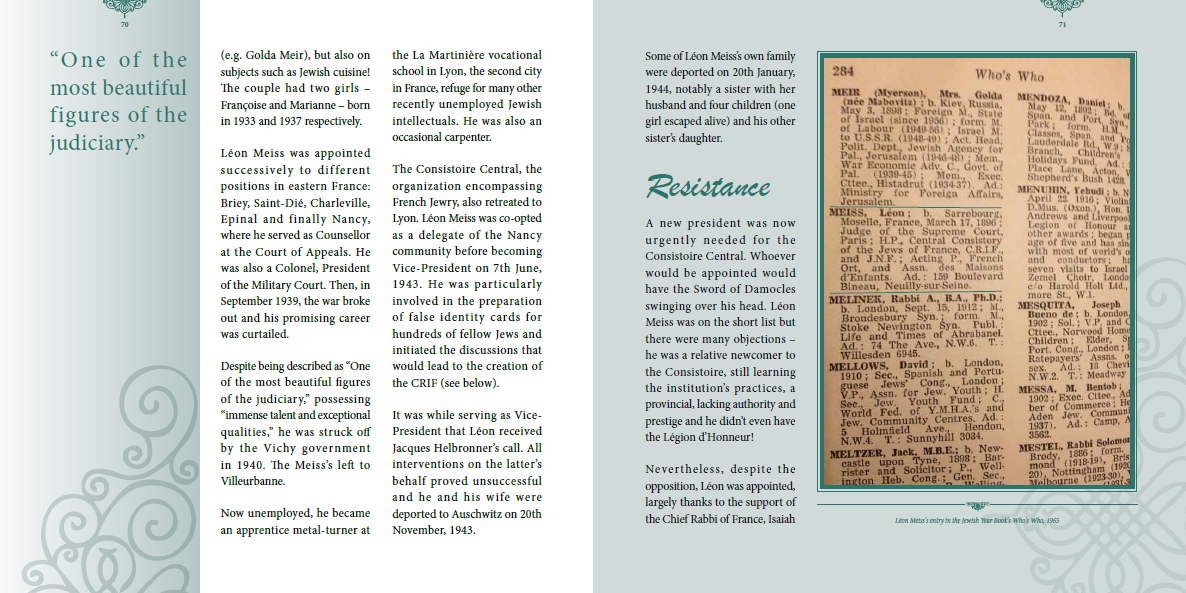 70
“One of the
most beautiful
figures of the
judiciary.”
(e.g. Golda Meir), but also on
subjects such as Jewish cuisine!
The couple had two girls –
Françoise and Marianne – born
in 1933 and 1937 respectively.
Léon Meiss was appointed
successively to different
positions in eastern France:
Briey, Saint-Dié, Charleville,
Epinal and finally Nancy,
where he served as Counsellor
at the Court of Appeals. He
was also a Colonel, President
of the Military Court. Then, in
September 1939, the war broke
out and his promising career
was curtailed.
Despite being described as “One
of the most beautiful figures
of the judiciary,” possessing
“immense talent and exceptional
qualities,” he was struck off
by the Vichy government
in 1940. The Meiss’s left to
Villeurbanne.
Now unemployed, he became
an apprentice metal-turner at
the La Martinière vocational
school in Lyon, the second city
in France, refuge for many other
recently unemployed Jewish
intellectuals. He was also an
occasional carpenter.
The Consistoire Central, the
organization encompassing
French Jewry, also retreated to
Lyon. Léon Meiss was co-opted
as a delegate of the Nancy
community before becoming
Vice-President on 7th June,
1943. He was particularly
involved in the preparation
of false identity cards for
hundreds of fellow Jews and
initiated the discussions that
would lead to the creation of
the CRIF (see below).
It was while serving as Vice-
President that Léon received
Jacques Helbronner’s call. All
interventions on the latter’s
behalf proved unsuccessful
and he and his wife were
deported to Auschwitz on 20th
November, 1943.
71
Some of Léon Meiss’s own family
were deported on 20th January,
1944, notably a sister with her
husband and four children (one
girl escaped alive) and his other
sister’s daughter.
Resistance
A new president was now
urgently needed for the
Consistoire Central. Whoever
would be appointed would
have the Sword of Damocles
swinging over his head. Léon
Meiss was on the short list but
there were many objections –
he was a relative newcomer to
the Consistoire, still learning
the institution’s practices, a
provincial, lacking authority and
prestige and he didn’t even have
the Légion d’Honneur!
Nevertheless, despite the
opposition, Léon was appointed,
largely thanks to the support of
the Chief Rabbi of France, Isaiah
284
Who's Who
MEIR (Myerson), Mrs. Golda
(née Mabovitz) ; b. Kiev, Russia,
May 3, 1898 ; Foreign M., State
of Israel (since 1956) ; form. M.
of Labour (1949-56) ; Israel M.
to U.S.S.R. (1948-49) ; Act. Head,
Polit. Dept., Jewish Agency for
Pal., Jerusalem (1946-48) ; Mem.,
War Economic Adv. C., Govt. of
Pal. (1939-45) ; Mem., Exec.
Cttee., Histadrut (1934-37). Ad.:
Ministry for Foreign Affairs,
Jerusalem.
MEISS, Léon ; b. Sarrebourg,
Moselle, France, March 17, 1896 ;
Judge of the Supreme Court,
Paris ; H.P., Central Consistory
of the Jews of France, C.R.I.F.,
and J.N.F. ; Acting P., French
Ort, and Assn. des Maisons
d'Enfants. Ad. : 159 Boulevard
Bineau, Neuilly-sur-Seine.
MELINEK, Rabbi A., B.A., Ph.D.;
b. London, Sept. 15, 1912 ; M.,
Brondesbury Syn. ; form. M.,
Stoke Newington Syn. Publ. :
Life and Times of Abrabanel.
Ad. : 74 The Ave., N.W.6. T. :
Willesden 6945.
MELLOWS, David ; b. London,
1910 ; Sec., Spanish and Portu-
guese Jews' Cong., London ;
V.P., Assn. for Jew. Youth ; H.
Sec., Jew. Youth Fund ; C.,
World Fed. of Y.M.H.A.'s and
Jew. Community Centres. Ad.
5 Holmfield Ave., Hendon,
N.W.4. T. : Sunnyhill 3084.
MELTZER, Jack, M.B.E.; b. New-
castle upon Tyne, 1898 ; Bar-
rister and Solicitor ; P., Well-
ington Heb. Cong. ; Gen. Sec.,
MENDOZA, Daniel ; b.
May 12, 1892 ; Bd. of
Span. and Port. Syn.,
Park ; form. H.M.
Classes, Span. and
Lauderdale Rd., W.9 ;
Branch, Children's
Holidays Fund. Ad. :
Place Lane, Acton,
Shepherd's Bush 1428.
MENUHIN, Yehudi ; b. N
April 22, 1916 ; Violin
D.Mus. (Oxon.), Hon.
Andrews and Liverpool
Legion of Honour
other awards ; began
age of five and has
with most of world's
and conductors ;
seven visits to Israel
Zemel Choir, Londo
c/o Harold Holt Ltd.,
more St., W.1.
MESQUITA, Joseph
Bueno de ; b. London
1902 ; Sol. ; V.P. and
Cttee., Norwood Home
Children ; Elder,
Port. Cong., London ;
Ratepayers' Assns.
sex. Ad. : 18
N.W.2. T. : Meadway
MESSA, M. Bentob ;
1902 ; Exec. Cttee.,
ber of Commerce ;
Aden Jew. Commun
1937). Ad. : Camp, A
3562.
MESTEL, Rabbi Solomon
Brody, 1886 ; form.
mond (1918-19), Bris
20), Nottingham
Melbourne (1923-30),
Léon Meiss's entry in the Jewish Year Book's Who's Who, 1965